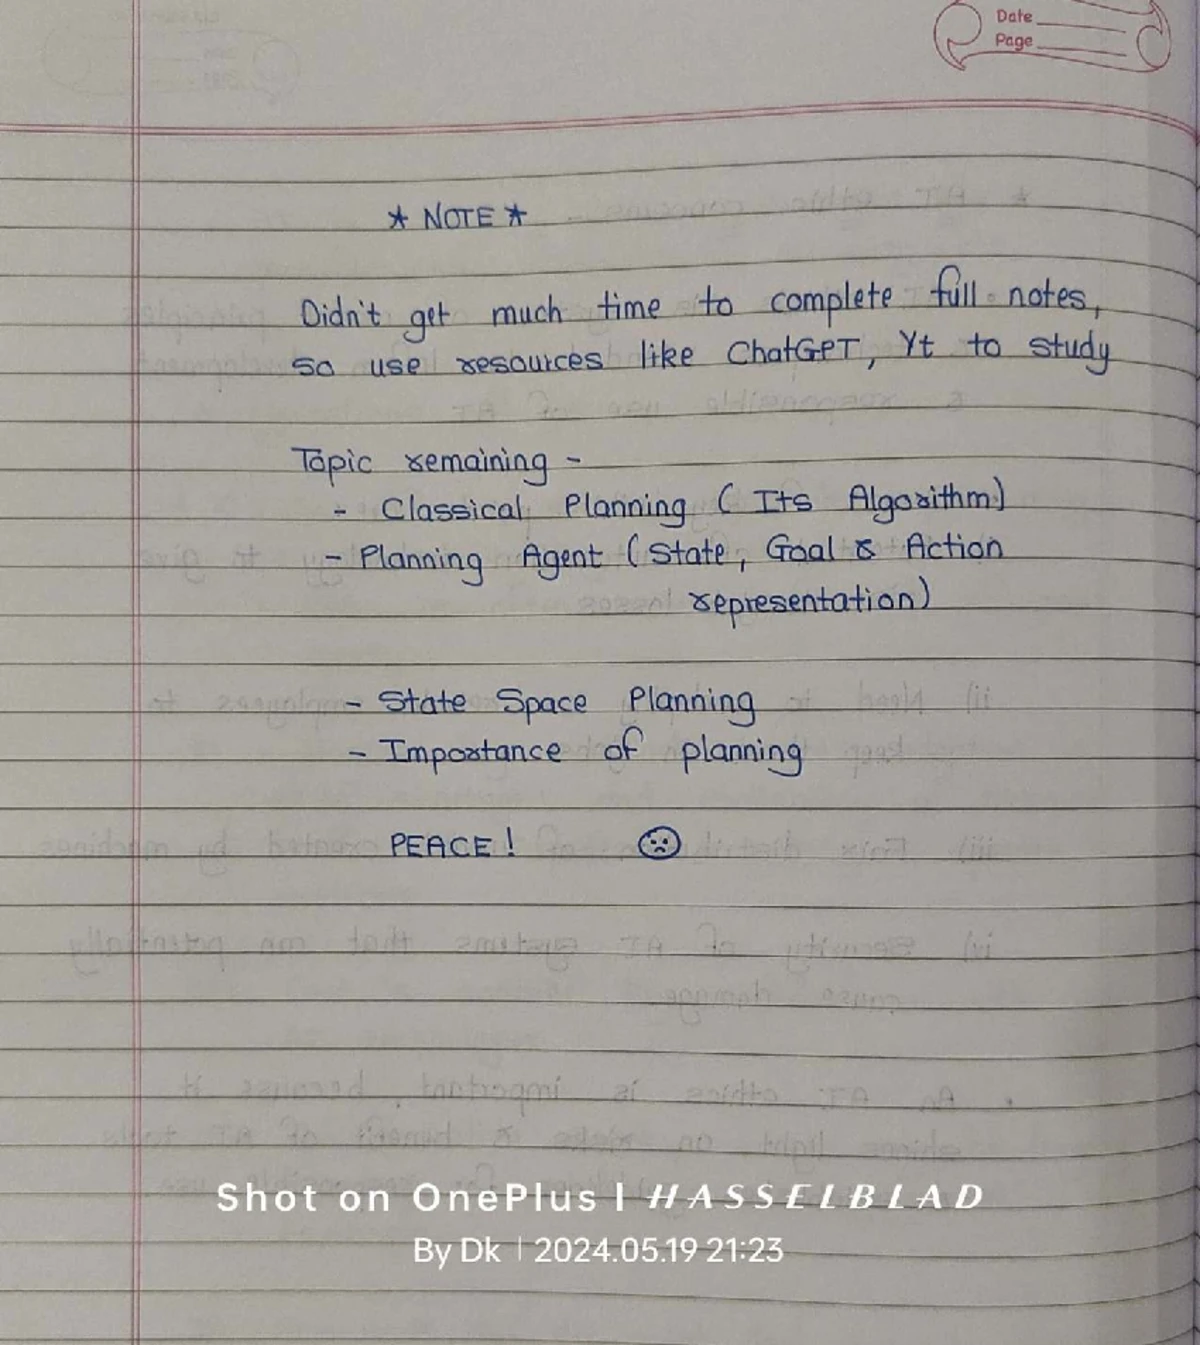 Date
Page
* NOTE *
Didn't get much time to complete full notes,
so use resources like ChatGPT, Yt to study
Topic remaining -
- Classical Planning ( Its Algorithm)
- Planning Agent (State, Goal & Action
representation)
- State Space Planning
- Importance of planning
PEACE!
Shot on OnePlus | HASSELBLAD
By Dk | 2024.05.19 21:23